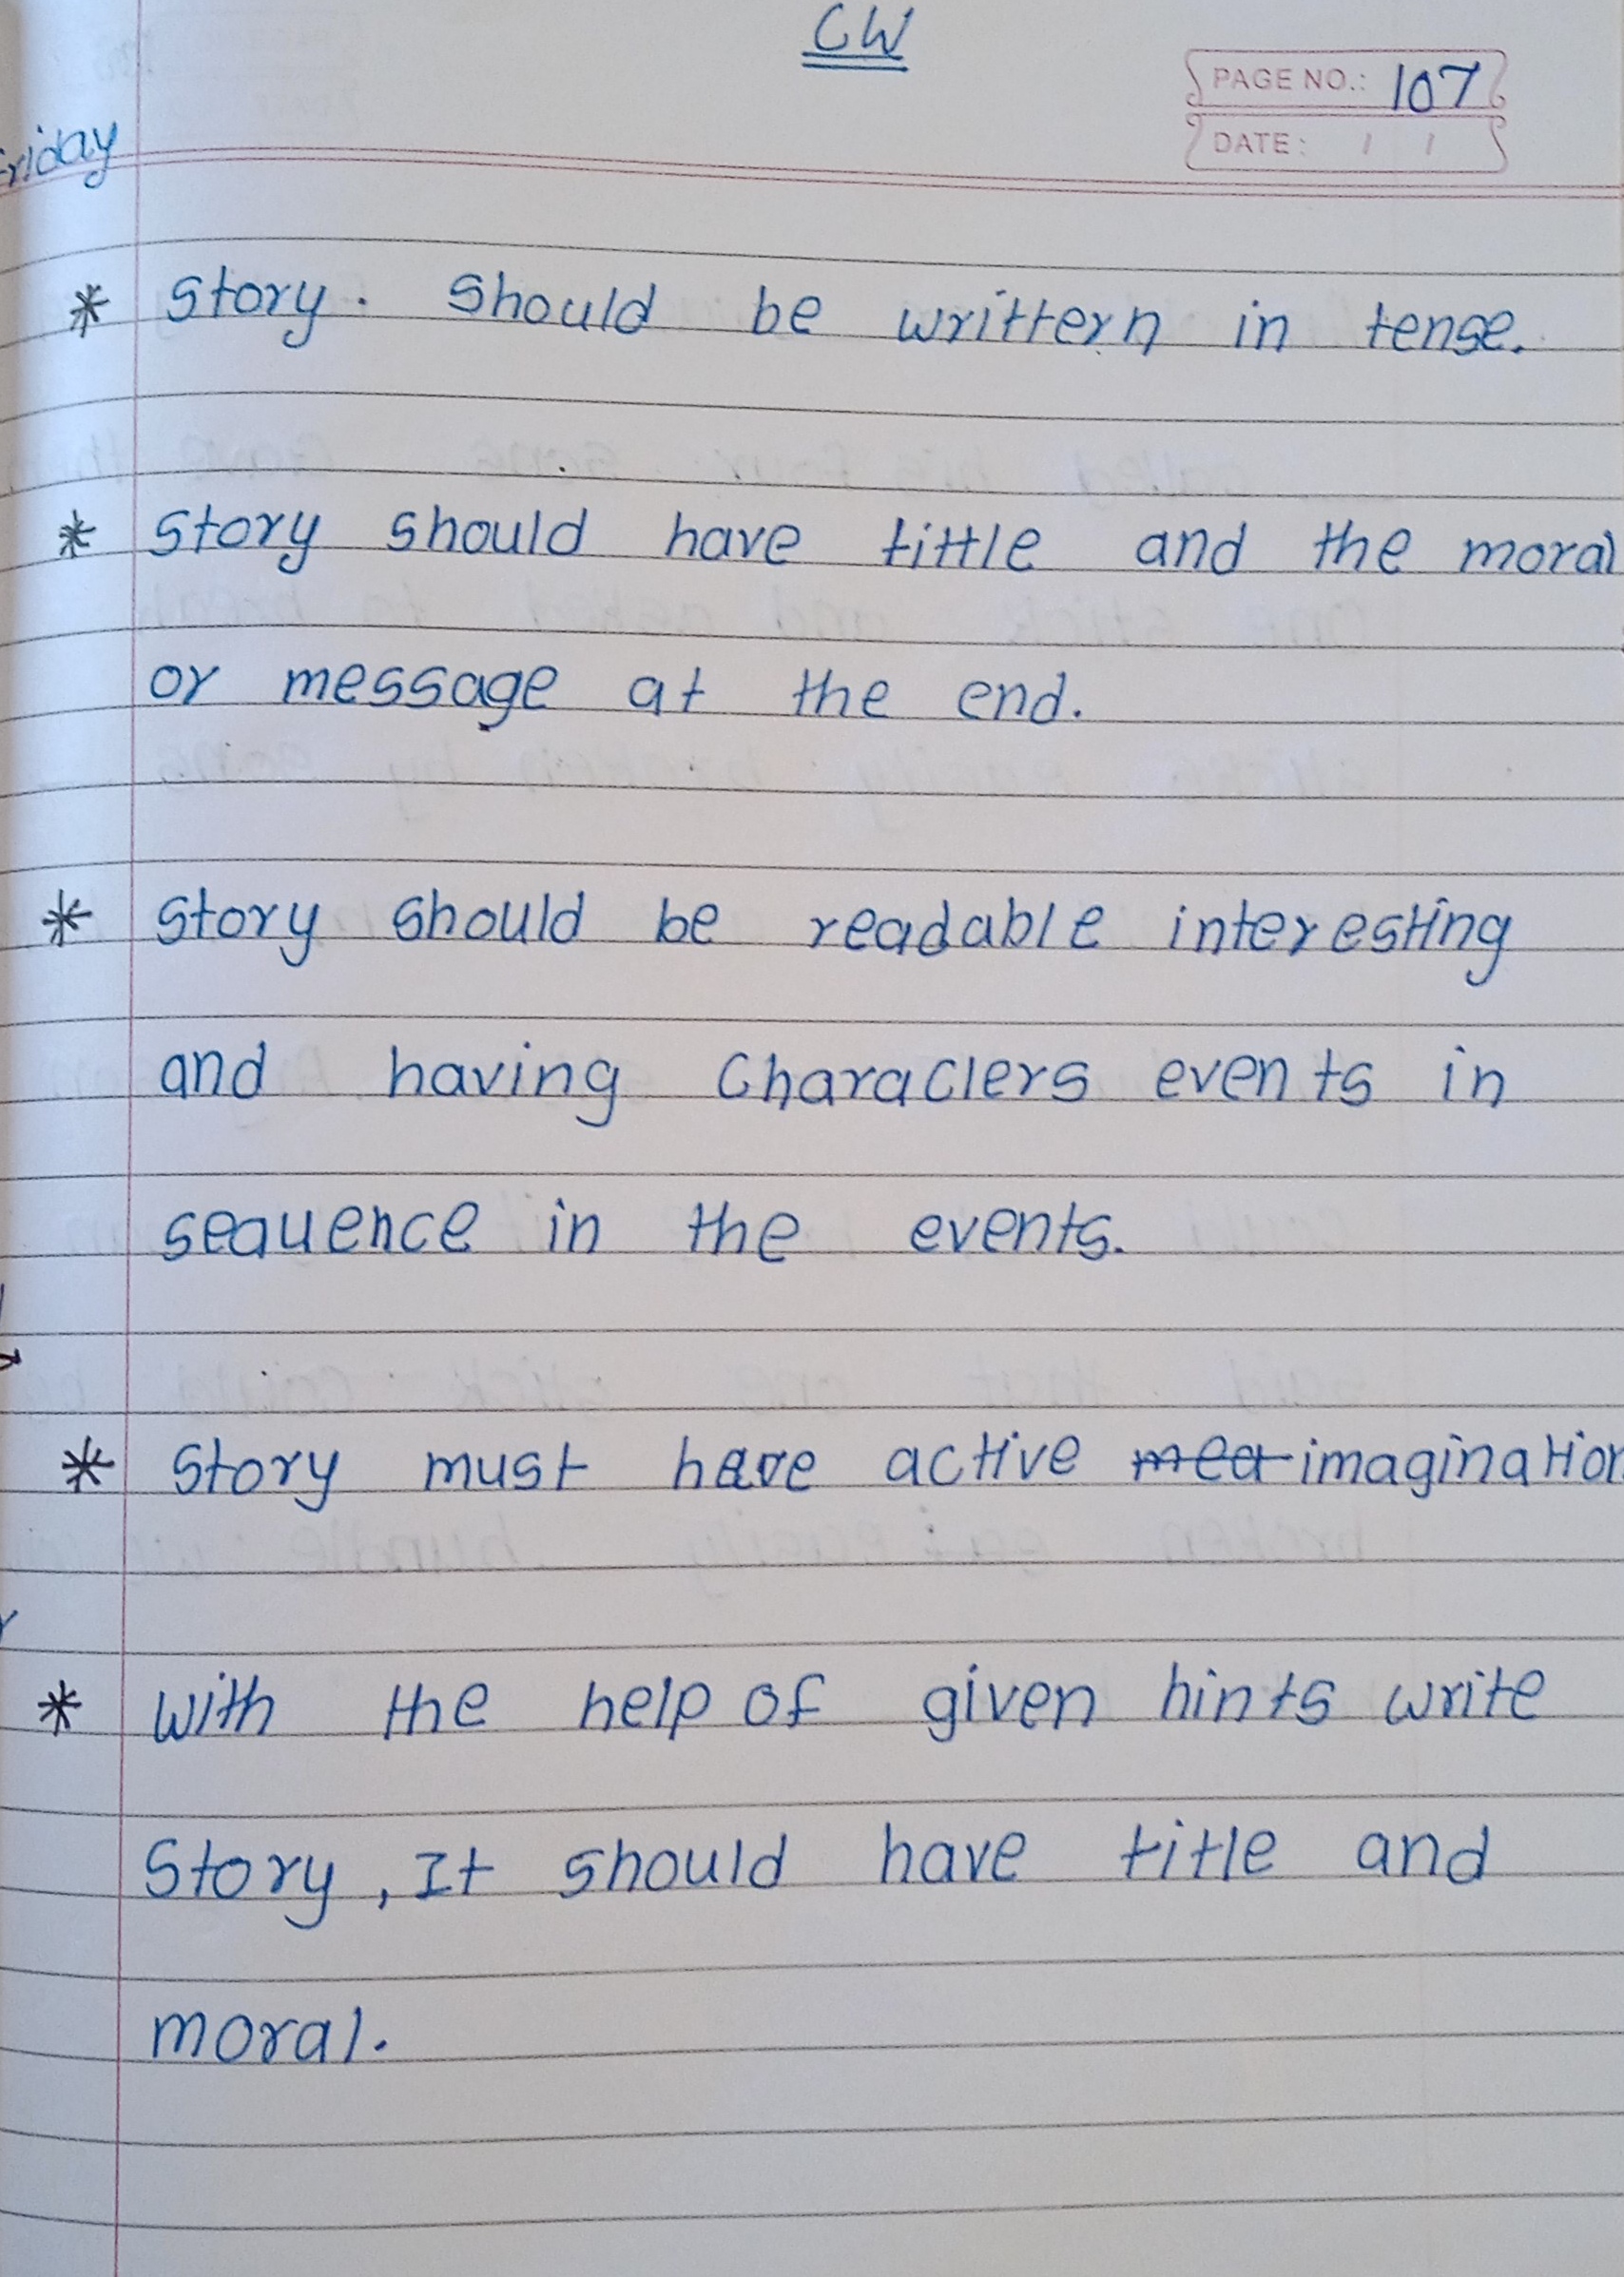 CW
PAGE NO.: 107
DATE: / /
Friday
* Story. Should be writtern in tense.
* Story should have tittle and the moral
or message at the end.
* Story should be readable interesting
and having Characlers events in
seauence in the events.
* Story must have active mea imagination
* With the help of given hints write
Story, It should have title and
moral.